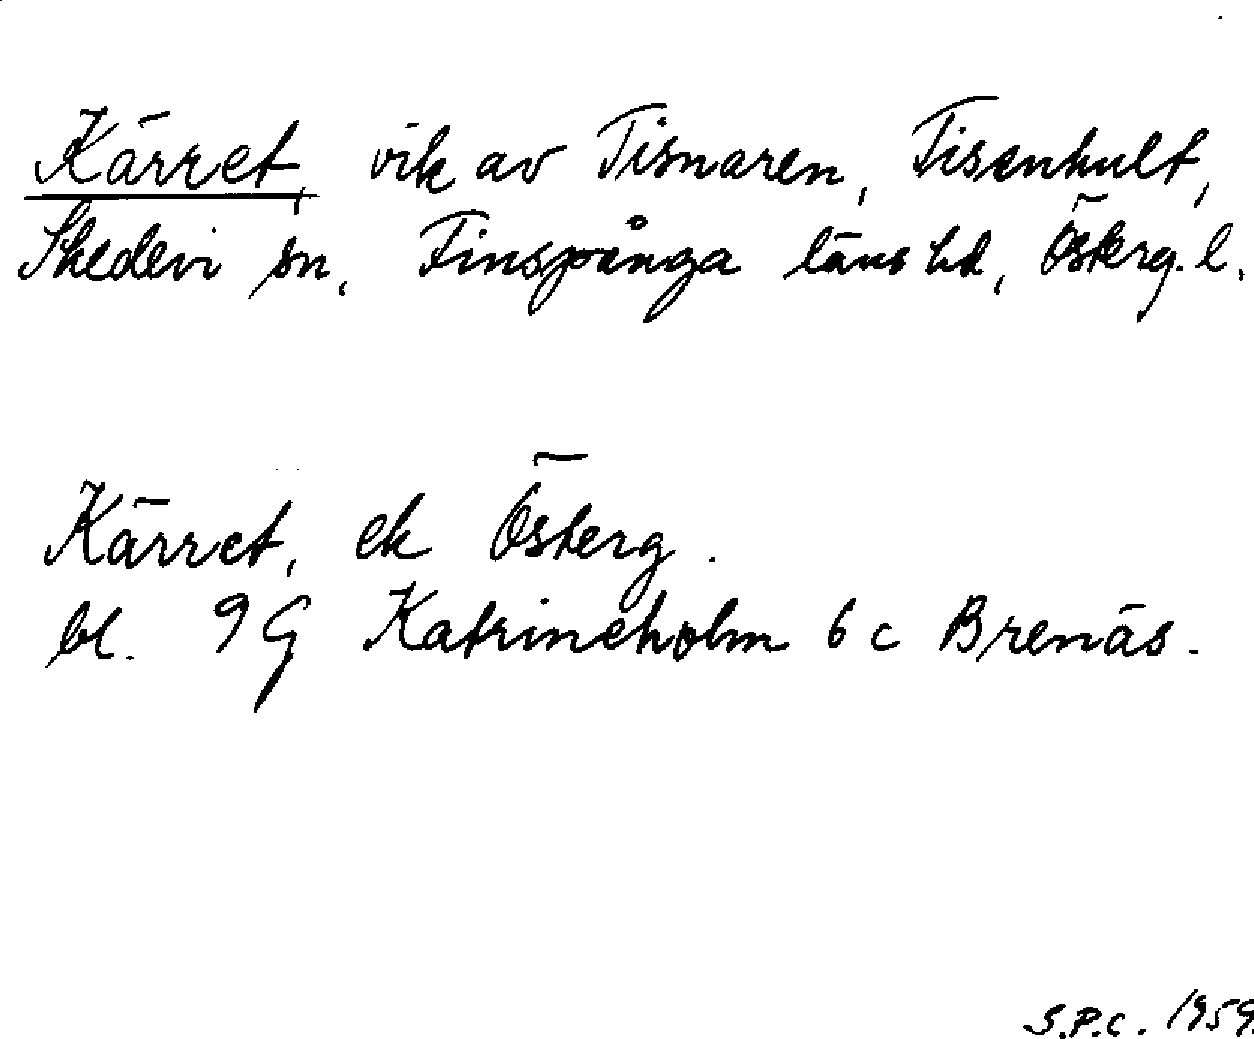 Kärret, vik av Tisnaren, Tisenhult,
Skedevi sn, Finspånga läns hd, Österg. l.
Kärret, ek Österg.
bl. 9 G Katrineholm 6 c Brenäs.
S.P.C. 1959.